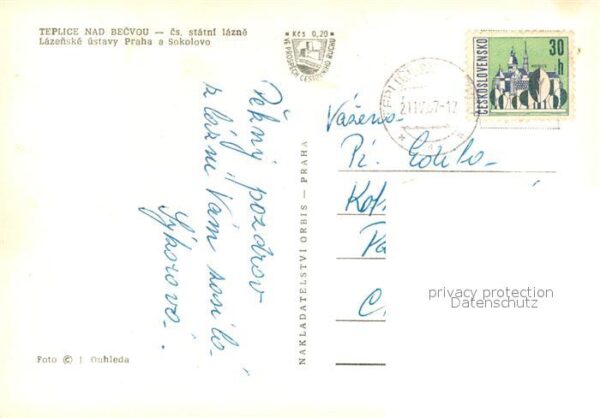 TEPLICE NAD BEČVOU — čs. státní lázně
Lázeňské ústavy Praha a Sokolovo
Kčs 0,20
VE PROSPĚCH CESTOVNÍHO RUCHU
ČESKOSLOVENSKO
30 h
Pěkný pozdrav
z lázní Vám zasílá
Sýkorová.
NAKLADATELSTVÍ ORBIS — PRAHA
Vážená
Pí.
privacy protection
Datenschutz
Foto © J. Ouhleda